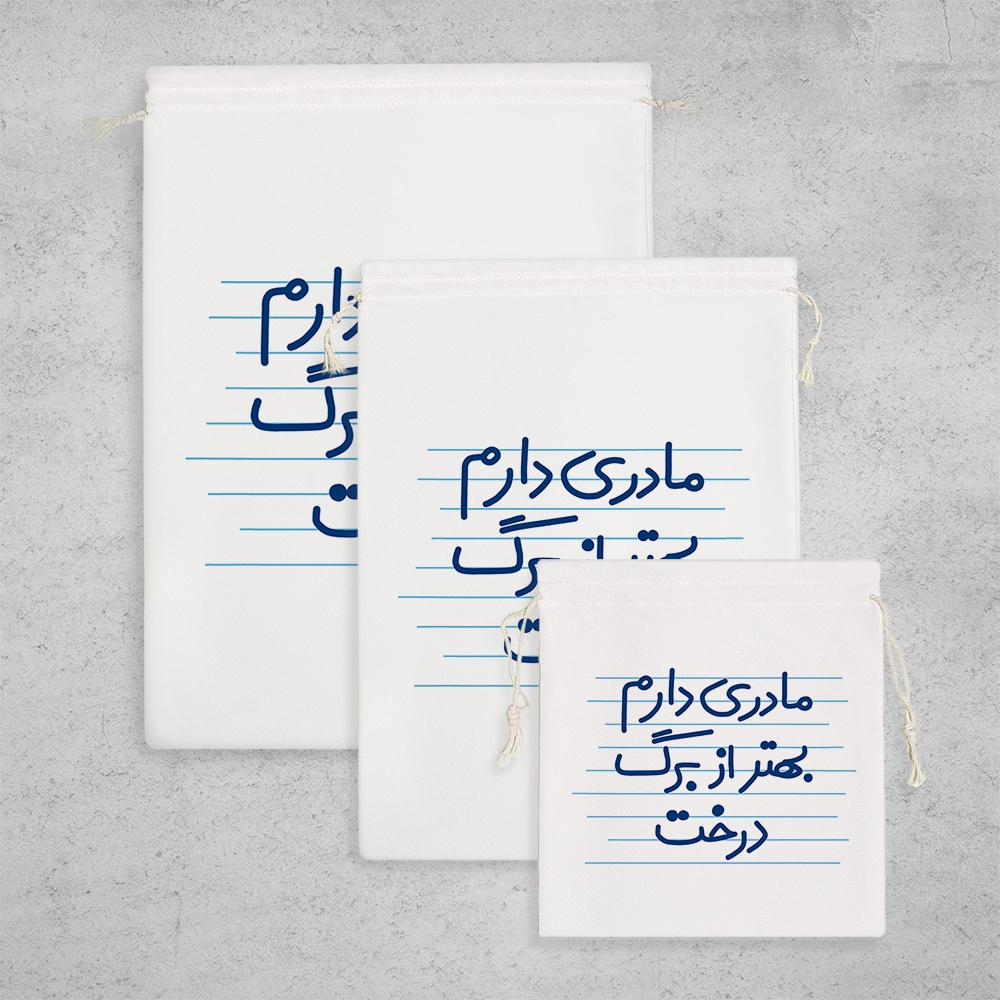 دارم
برگ
ت
مادری دارم
بهتر از برگ
ت
مادری دارم
بهتر از برگ
درخت